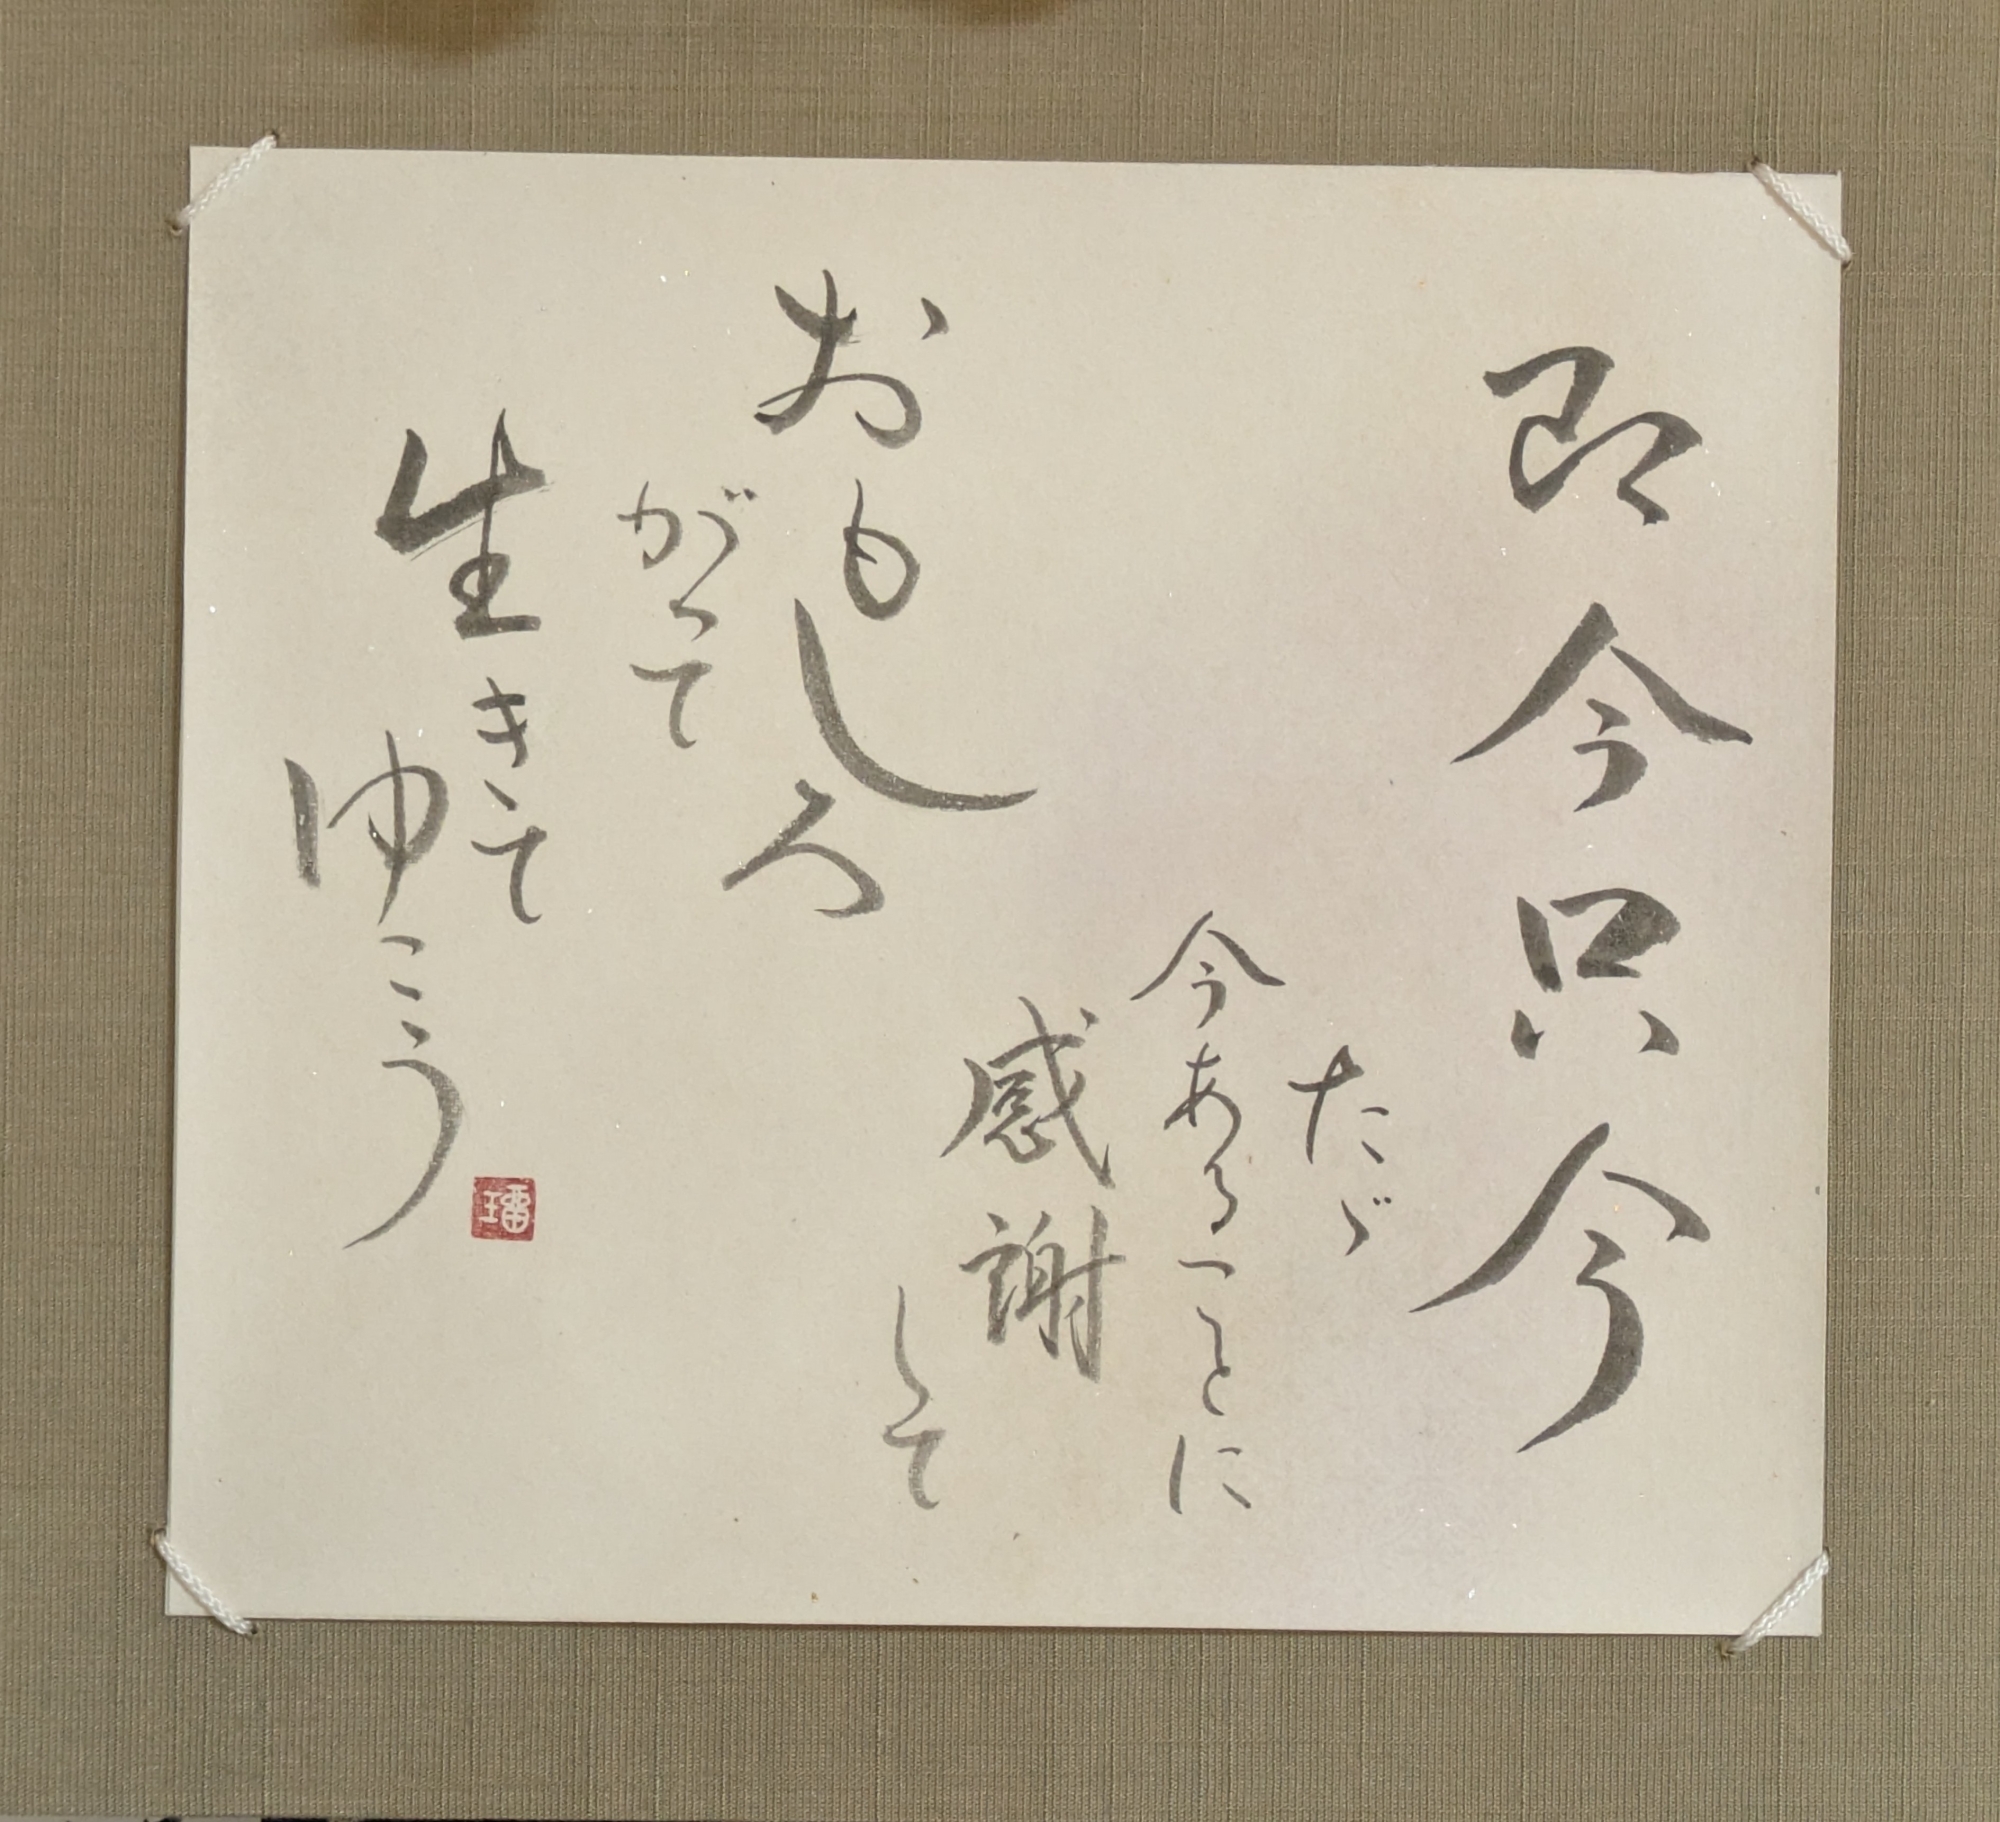 即今只今
たゞ
今あることに
感謝
して
おもしろ
がって
生きて
ゆこう